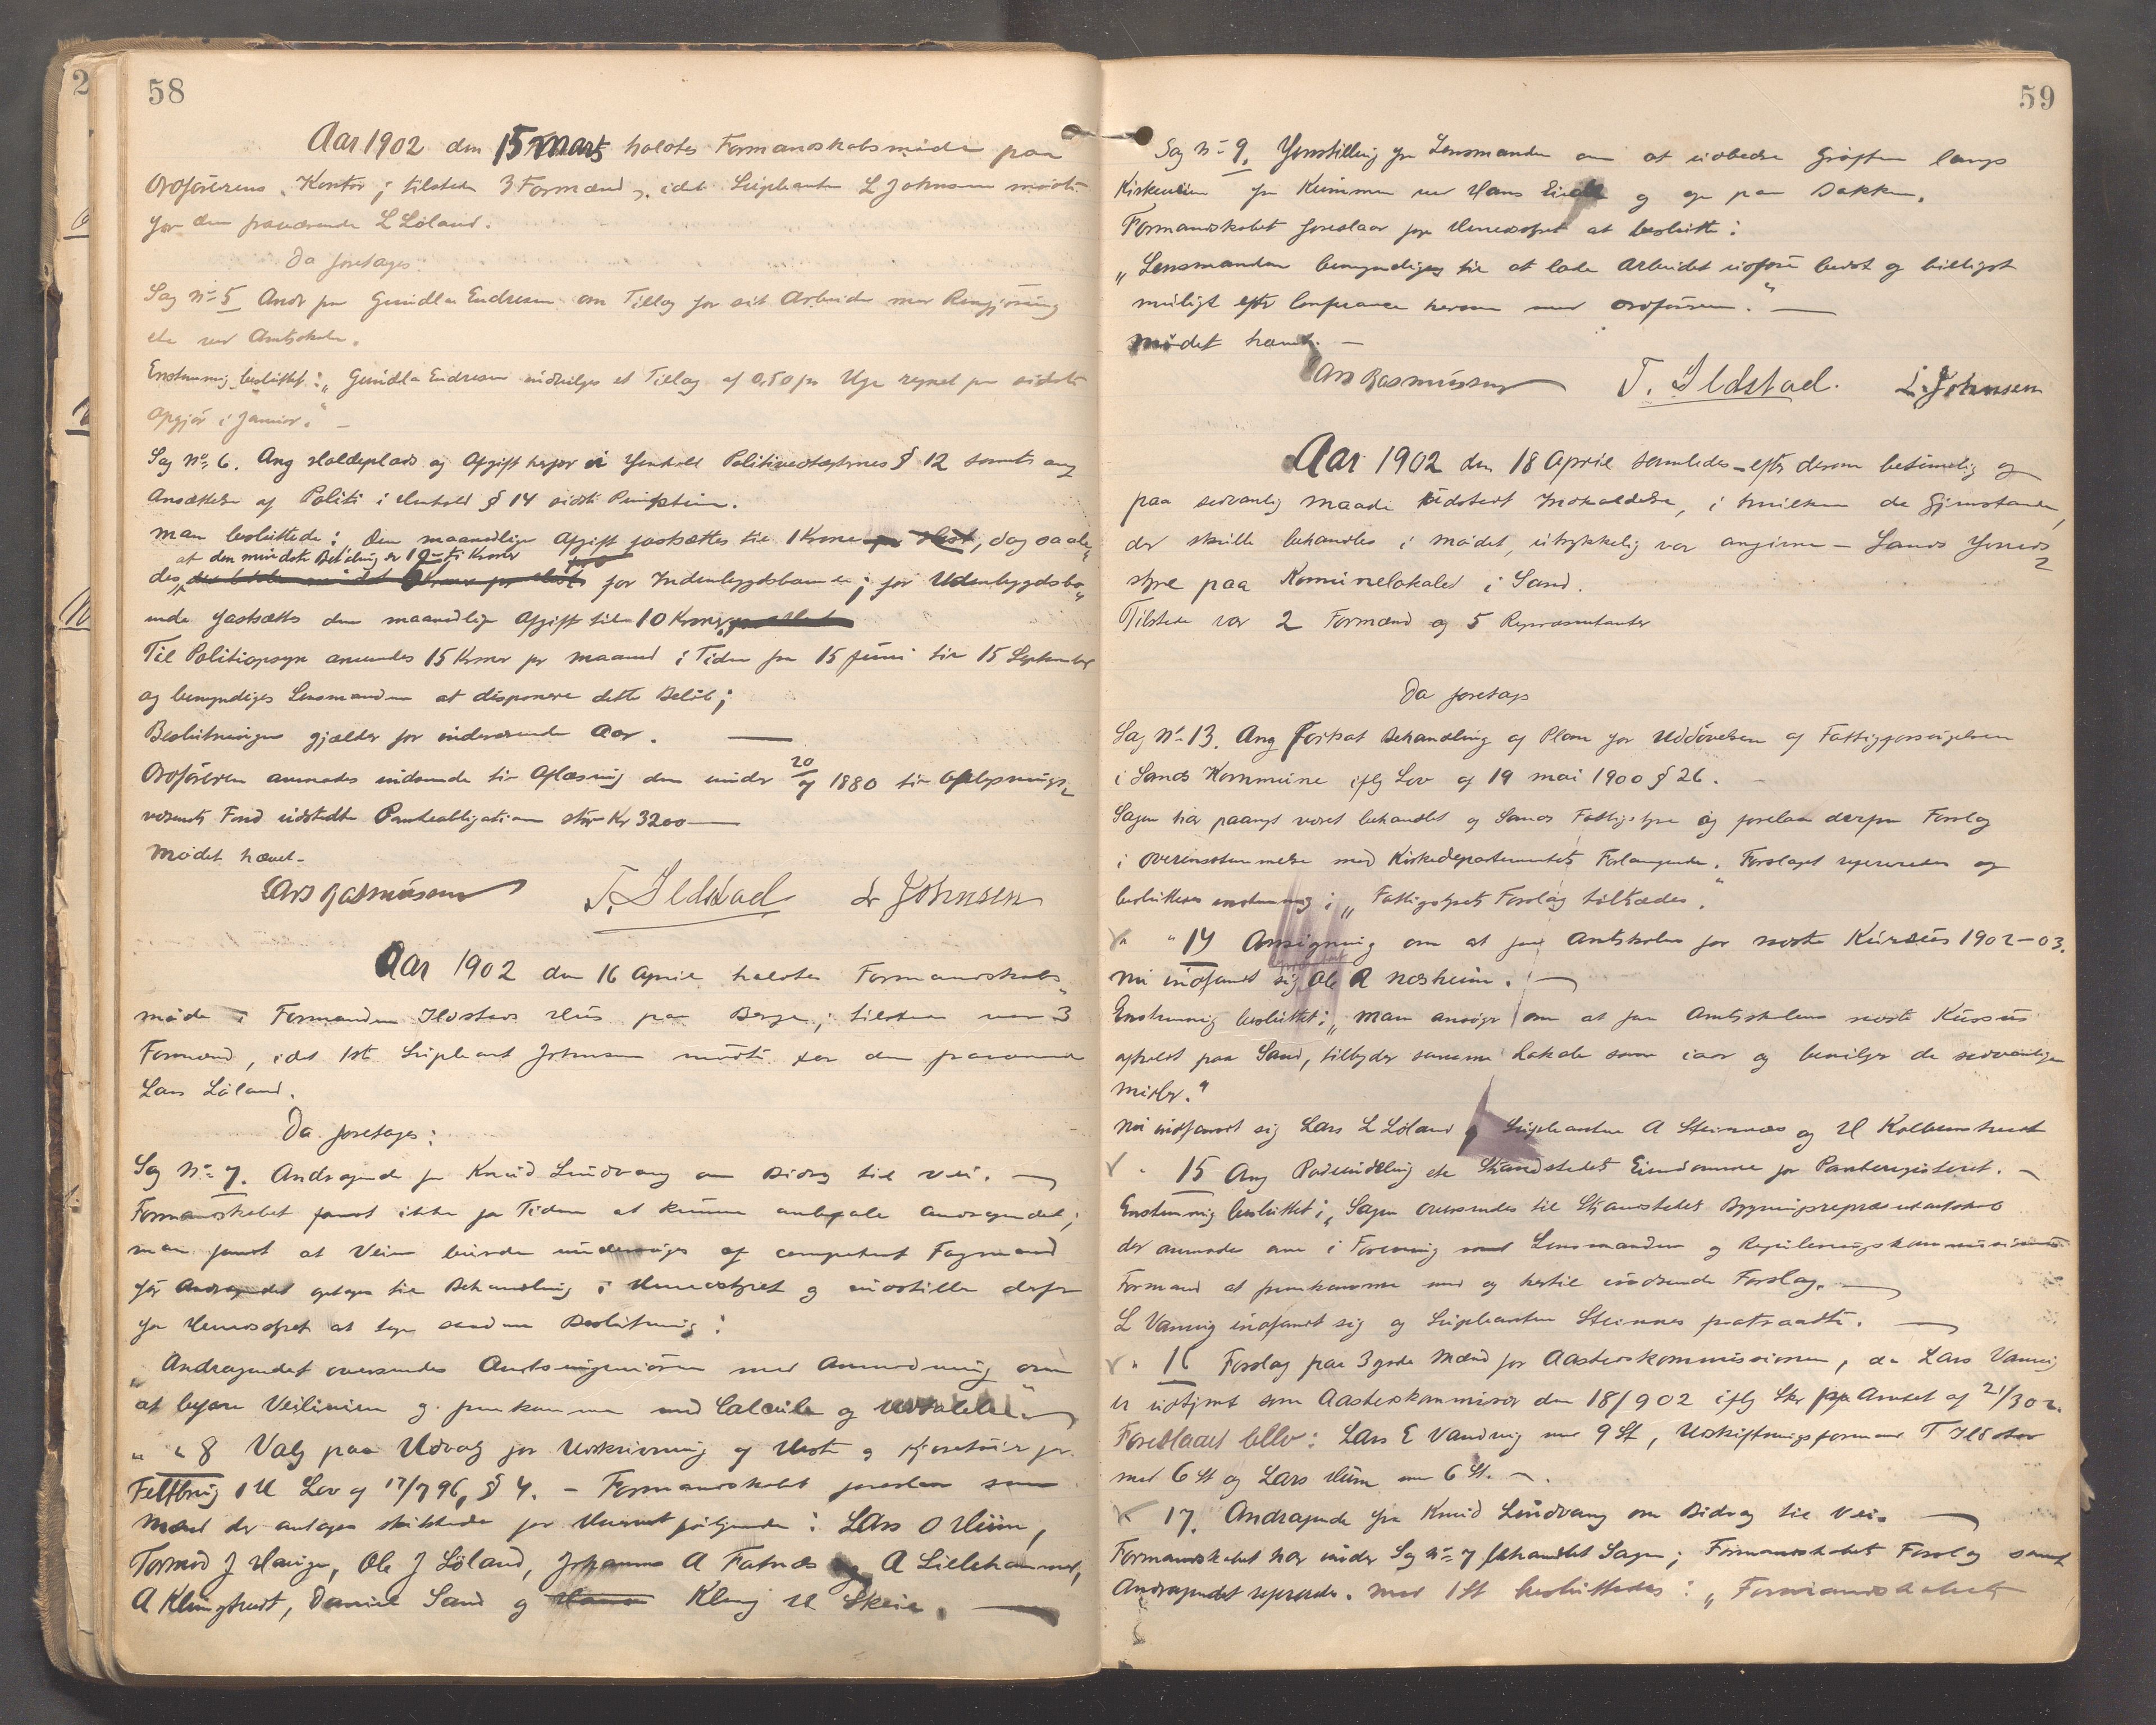 58
Aar 1902 den 15 Marts holdtes Formandskabsmöde paa
Ordförerens Kontor; tilstede 3 Formænd, idet Supleanten L Johnsen mödte
for den fraværende L Löland.
Da foretages:
Sag No 5 Andr fra Gundla Endresen om Tillæg for sit Arbeide med Rengjöring
etc ved Amtskolen.
Enstemmig besluttet: „Gundla Endresen indvilges et Tillæg af 0,50 pr Uge regnet fra sidste
Opgjör i Januar."
Sag No 6. Ang Holdeplads og Afgift herfor i Henhold Politivedtægternes § 12 samt ang
Ansættelse af Politi i Henhold § 14 sidste Punktum.
Man besluttede: Den maanedlige Afgift fastsættes til 1 Krone pr Hest, dog saale„
at den mindste Betaling er 10 ti Kroner
des for Indenbygdsbönder; for Udenbygdsbö„
nde fastsættes den maanedlige Afgift til 10 Kroner
Til Politiopsyn anvendes 15 Kroner pr Maaned i Tiden fra 15 Juni til 15 September
og bemyndiges Lensmanden at disponere dette Belöb;
Beslutningen gjælder for indeværende Aar.
Ordföreren anmodes indsende til Aflæsning den under 20/7 1880 til Oplysnings„
væsenets Fond udstedte Panteobligation stor Kr 3200
Mödet hævet.
Lars Rasmussen T. Ildstad L Johnsen
Aar 1902 den 16 April holdtes Formandskabs„
möde i Formanden Ildstads Hus paa Berge; tilstede var 3
Formænd, idet 1ste Supleant Johnsen mödte for den fraværende
Lars Löland.
Da foretages:
Sag No 7. Andragende fra Knud Lindvang om Bidrag til Vei.
Formandskabet fandt ikke for Tiden at kunne anbefale Andragendet;
man fandt at Veien burde undersöges af competent Fagmand
för Andragendet optages til Behandling i Herredstyret og indstiller derfor
for Herredstyret at tage saadan Beslutning:
„Andragendet oversendes Amtsingeniören med Anmodning om
at befare Veilinien og fremkomme med Calcule og Udtalelse"
„ „ 8 Valg paa Udvalg for Udskrivning af Heste og Kjöretöier for
Feltbrug i H Lov af 17/7 96, § 4. – Formandskabet foreslaar som
Mænd der antages skikkede for Hvervet fölgende: Lars O Hiim,
Tormod J Hauge, Ole J Löland, Johannes A Fatnæs og A Lillehammer,
A Klungtvedt, Daniel Sand og Kleng H Skeie.
59
Sag No 9. Henstilling fra Lensmanden om at udbedre Gröften langs
Kirkeveien fra Kummen ved Hans og op paa Bakken.
Formandskabet foreslaar for Herredstyret at beslutte:
„Lensmanden bemyndiges til at lade Arbeidet udföre bedst og billigst
muligt efter Conferance herom med Ordföreren."
Mödet hævet. –
Lars Rasmussen T. Ildstad. L. Johnsen
Aar 1902 den 18 April samledes – efter dersom betimelig og
paa sedvanlig Maade udstedt Indkaldelse, i hvilken de Gjenstande,
der skulle behandles i Mödet, udtrykkelig var angivne – Sands Herreds„
styre paa Komunelokalet i Sand.
Tilstede var 2 Formænd og 5 Repræsentanter
Da foretages
Sag No 13. Ang Fortsat Behandling af Plan for Udövelsen af Fattigforsörgelsen
i Sands Kommune ifölg Lov af 19 Mai 1900 § 26. –
Sagen har paanyt været behandlet af Sands Fattigstyre og forelaa derfra Forslag
i Overensstemmelse med Kirkedepartementets Forlangende. Forslaget refereredes og
besluttedes enstemmig; „Fattigstyrets Forslag tiltrædes."
„ „ 14 Ansögning om at faa Amtskolen for næste Kursus 1902–03.
Nu indfandt sig Ole R Næsheim.
Enstemmig besluttet: „Man ansöger om at faa Amtskolens næste Kursus
afholdt paa Sand, tilbyder samme Lokale som iaar og bevilger de sedvanlige
Midler."
Nu indfandt sig Lars L Löland og Supleanterne A Steinnes og H Kolbenstvedt
„ 15 Ang Rodeinddeling etc Strandstedets Eiendomme for Panteregisteret. –
Enstemmig besluttet: „Sagen oversendes til Strandstedets Bygningsrepræsentantskab
der anmodes om i Forening med Lensmanden og Reguleringskommissionens
Formand at fremkomme med og hertil indsende Forslag.
L Vanvig indfandt sig og Supleanten Steinnes fratraadte.
„ 16 Forslag paa 3 gode Mænd for Aastedskommissionen, da Lars Vanvig
er udtjent som Aastedskommisær den 18/902 ifölg Skr fra Amtet af 21/302.
Foreslaaet blev: Lars E Vandvig med 9 St, Udskiftningsformand T Ildstad
med 6 St og Lars Hiim med 6 St. –.
„ 17. Andragende fra Knud Lindvang om Bidrag til Vei.
Formandskabet har under Sag No 7 behandlet Sagen; Formandskabets Forslag samt
Andragendet refereredes. Med 1 St besluttedes: „Formandskabets